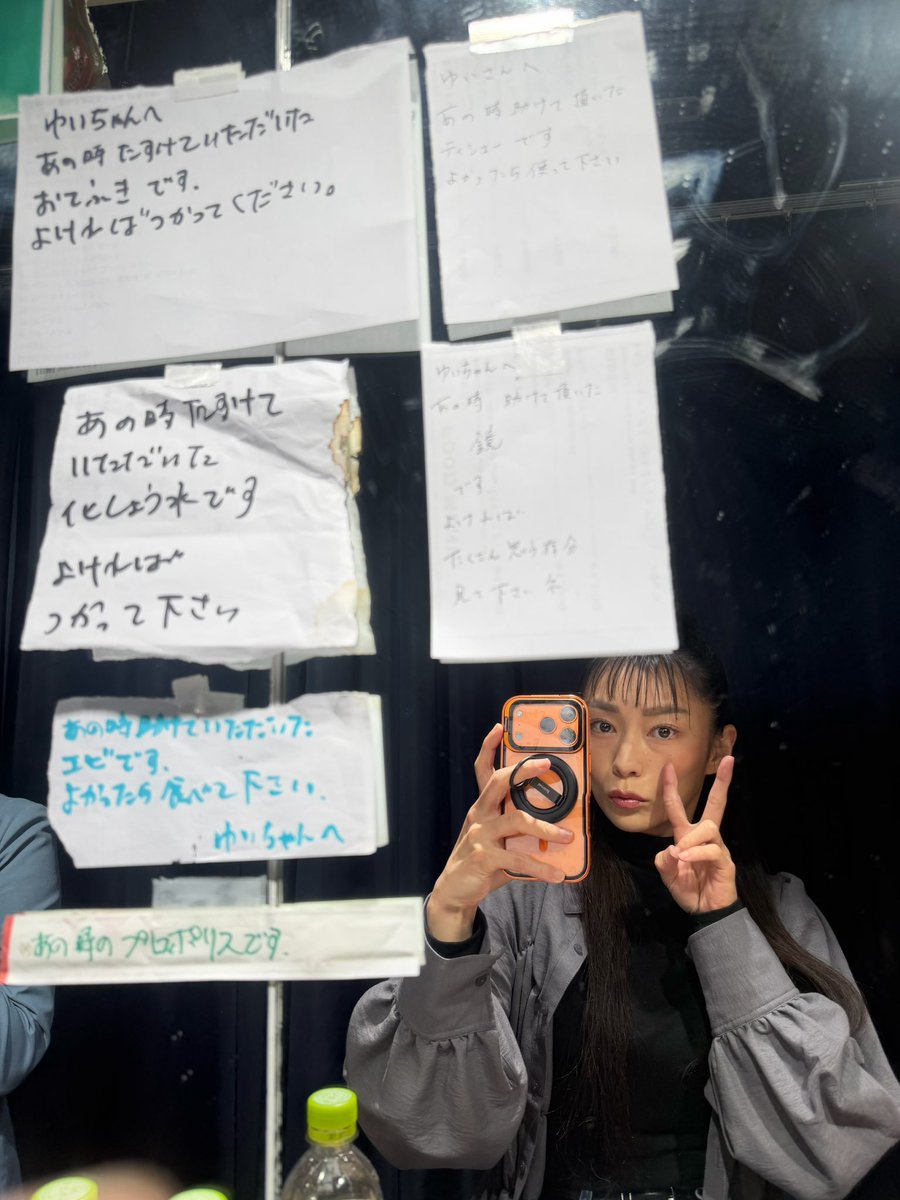 ゆいちゃんへ
あの時 たすけていただいた
おてふき です.
よければつかってください。
ゆいさんへ
あの時 助けて 頂いた
ティシューです
よかったら使って下さい
あの時たすけて
いただいた
化しょう水です
よければ
つかって下さい
ゆいちゃんへ
あの時 助けて頂いた
鏡
です.
よければ
たくさん思う存分
見て下さいネ
あの時助けていただいた
エビです.
よかったら食べて下さい.
ゆいちゃんへ
あの時の プロポリスです.